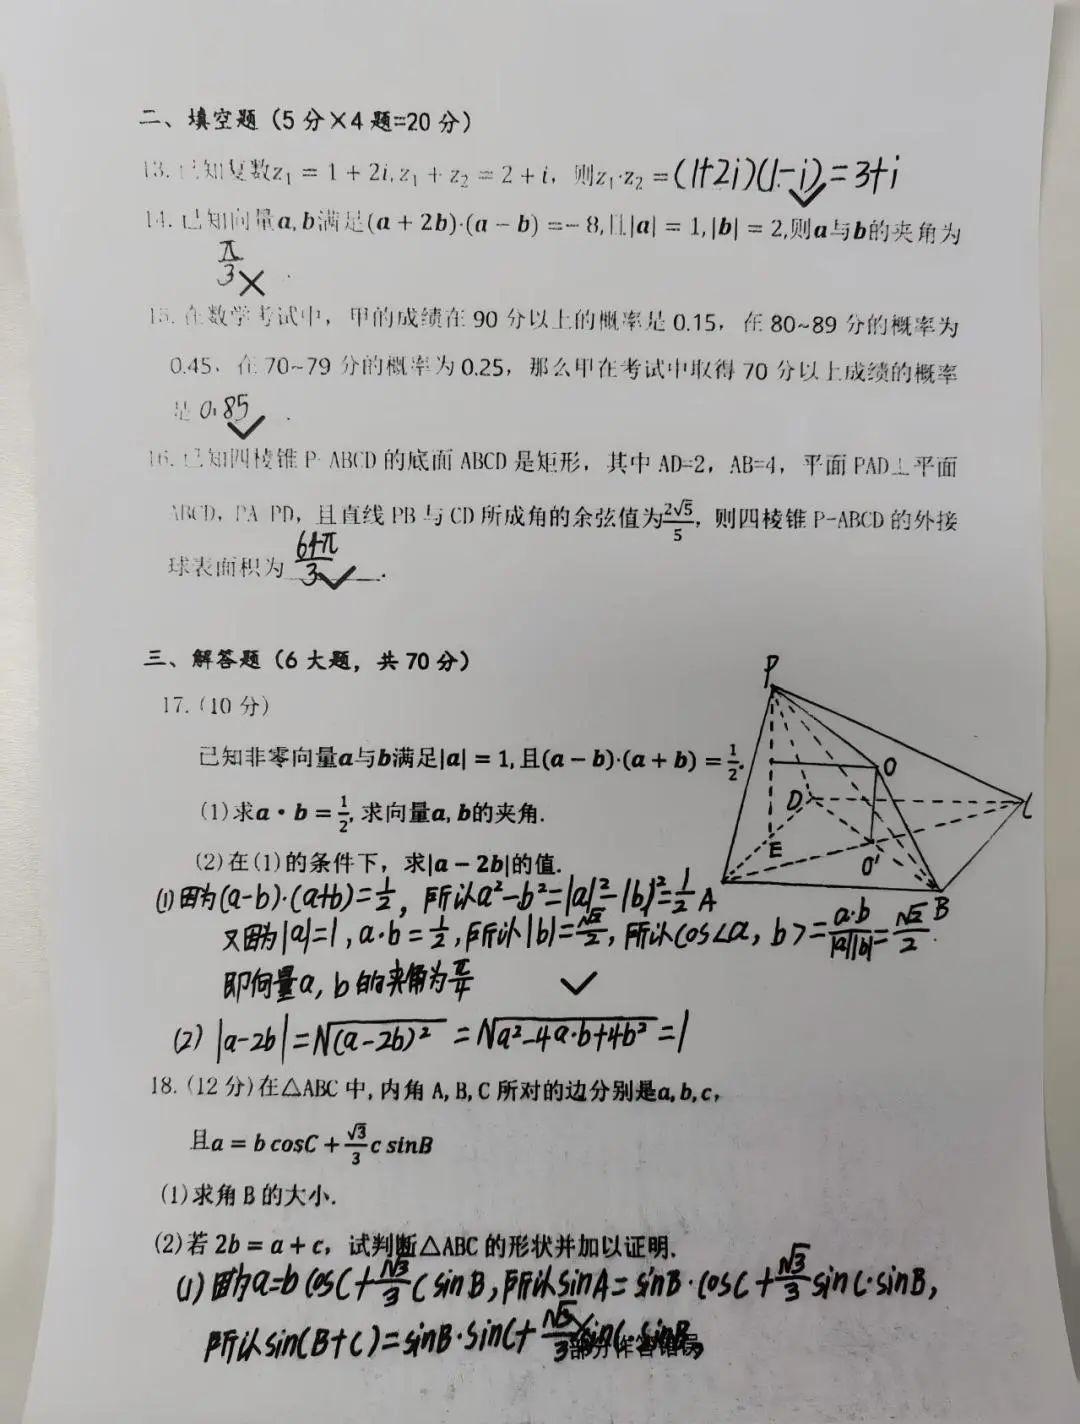 二、填空题（5 分×4 题=20 分）
13. 已知复数z₁ = 1 + 2i, z₁ + z₂ = 2 + i，则z₁·z₂ = (1+2i)(1-i) = 3+i
14. 已知向量a, b满足(a + 2b)·(a − b) =− 8,且|a| = 1, |b| = 2,则a与b的夹角为
π/3 ×
15. 在数学考试中，甲的成绩在 90 分以上的概率是 0.15，在 80~89 分的概率为
0.45，在 70~79 分的概率为 0.25，那么甲在考试中取得 70 分以上成绩的概率
是 0.85 ✓ .
16. 已知四棱锥 P-ABCD 的底面 ABCD 是矩形，其中 AD=2，AB=4，平面 PAD⊥平面
ABCD，PA PD，且直线 PB 与 CD 所成角的余弦值为2√5/5，则四棱锥 P-ABCD 的外接
球表面积为 64π/3 ✓ .
三、解答题（6 大题，共 70 分）
17.（10 分）
已知非零向量a与b满足|a| = 1, 且(a − b)·(a + b) = 1/2.
(1)求a • b = 1/2, 求向量a, b的夹角.
(2)在(1)的条件下，求|a − 2b|的值.
P
O
D
C
E
O'
A
B
(1)因为(a-b)·(a+b)=1/2，所以a²-b²=|a|²-|b|²=1/2
又因为|a|=1, a·b=1/2, 所以|b|=√2/2, 所以cos<a, b>=a·b/|a||b|=√2/2.
即向量a, b的夹角为π/4 ✓
(2) |a-2b|=√(a-2b)² =√a²-4a·b+4b² =1
18.（12 分）在△ABC 中, 内角 A, B, C 所对的边分别是a, b, c，
且a = b cosC + √3/3 c sinB
(1)求角 B 的大小.
(2)若 2b = a + c，试判断△ABC 的形状并加以证明.
(1) 因为a=b cosC+√3/3 c sinB, 所以sinA=sinB·cosC+√3/3 sinC·sinB,
所以sin(B+C)=sinB·sinC+√3/3 sinC·sinB,
部分作答错误